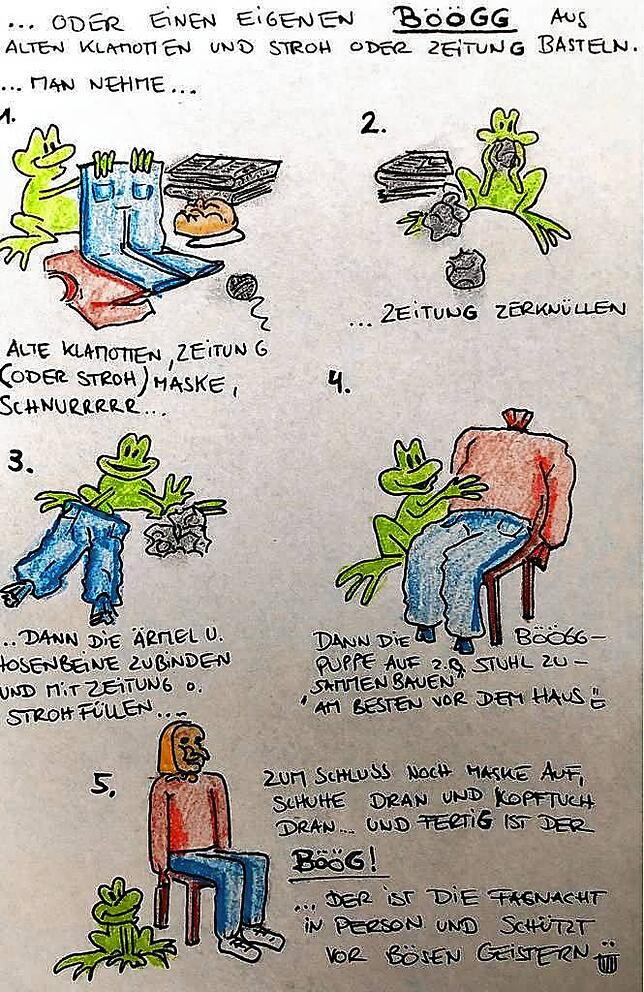 ... ODER EINEN EIGENEN BÖÖGG AUS
ALTEN KLAMOTTEN UND STROH ODER ZEITUNG BASTELN.
... MAN NEHME...
1.
ALTE KLAMOTTEN, ZEITUNG
(ODER STROH) MASKE,
SCHNURRRRR...
2.
... ZEITUNG ZERKNÜLLEN
3.
... DANN DIE ÄRMEL U.
HOSENBEINE ZUBINDEN
UND MIT ZEITUNG O.
STROH FÜLLEN...
4.
DANN DIE BÖÖGG-
PUPPE AUF Z.B. STUHL ZU-
SAMMENBAUEN"
"AM BESTEN VOR DEM HAUS
5.
ZUM SCHLUSS NOCH MASKE AUF,
SCHUHE DRAN UND KOPFTUCH
DRAN... UND FERTIG IST DER
BÖÖG!
... DER IST DIE FASNACHT
IN PERSON UND SCHÜTZT
VOR BÖSEN GEISTERN